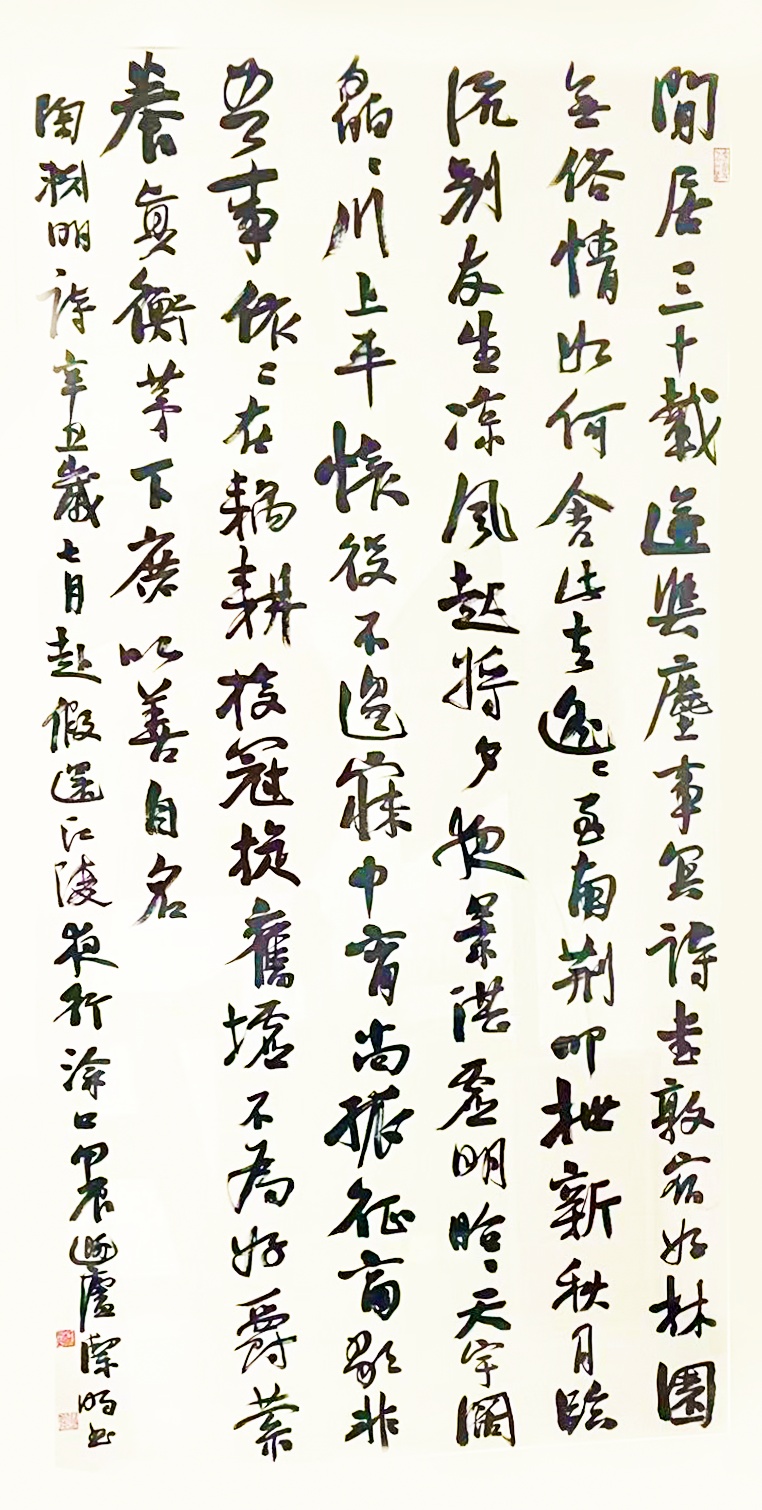 閒居三十載遂與塵事冥詩書敦宿好林園
無俗情如何舍此去遙〻至南荊叩枻新秋月臨
流別友生涼風起將夕夜景湛虛明昭〻天宇闊
皛〻川上平懷役不遑寐中宵尚孤征商歌非
吾事依〻在耦耕投冠旋舊墟不為好爵縈
養真衡茅下庶以善自名
陶淵明詩辛丑歲七月赴假還江陵夜行涂口甲辰廬潔明書